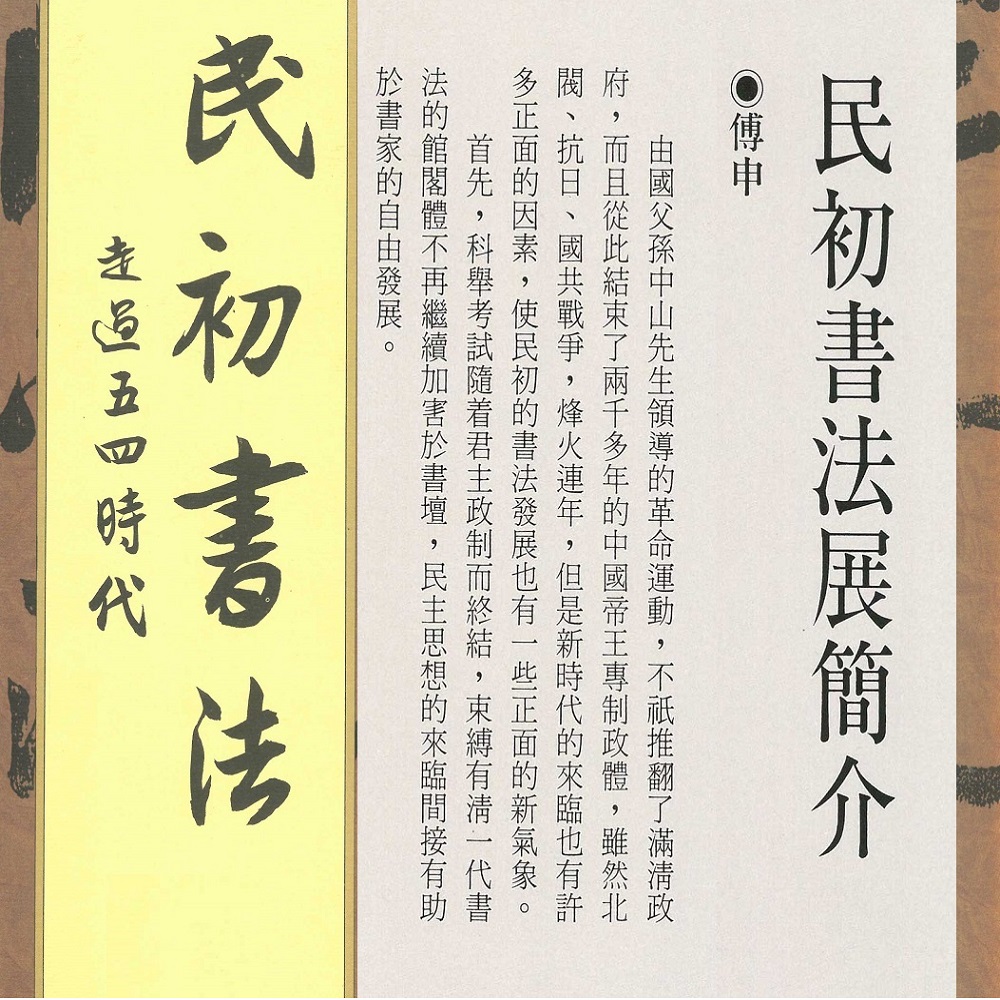 民初書法展簡介
◉傅申
由國父孫中山先生領導的革命運動，不祇推翻了滿清政
府，而且從此結束了兩千多年的中國帝王專制政體，雖然北
閥、抗日、國共戰爭，烽火連年，但是新時代的來臨也有許
多正面的因素，使民初的書法發展也有一些正面的新氣象。
首先，科舉考試隨着君主政制而終結，束縛有清一代書
法的館閣體不再繼續加害於書壇，民主思想的來臨間接有助
於書家的自由發展。
民初書法
走過五四時代